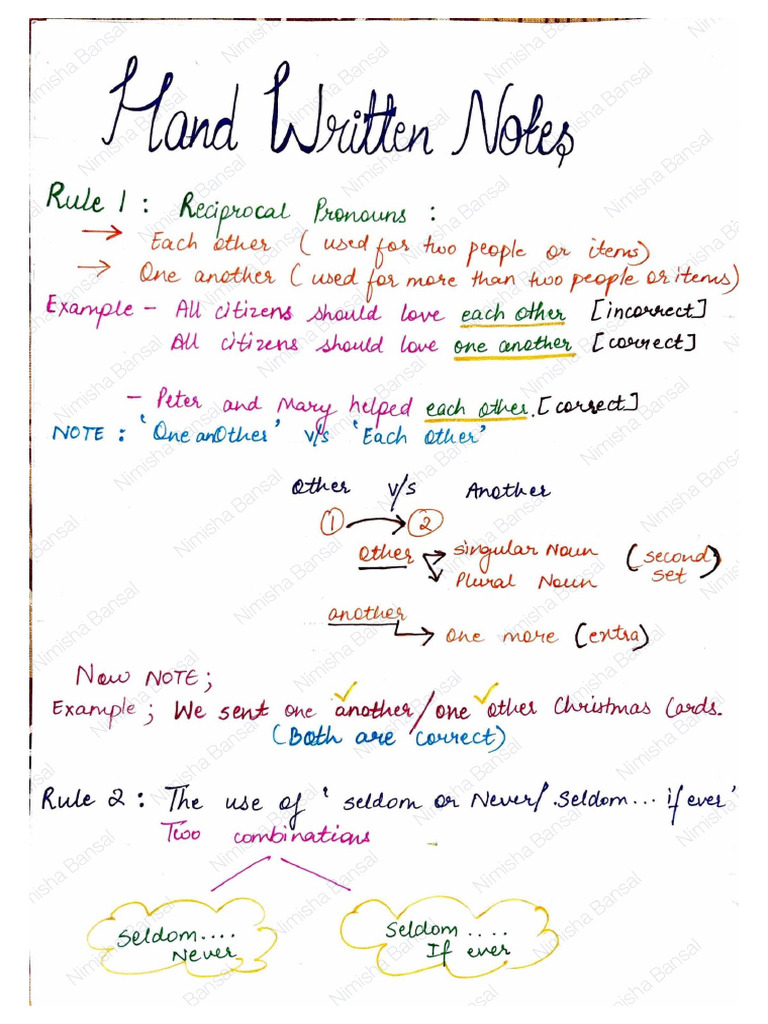 Hand Written Notes
Rule 1 : Reciprocal Pronouns :
→ Each other ( used for two people or items)
→ One another ( used for more than two people or items)
Example - All citizens should love each other [incorrect]
All citizens should love one another [correct]
- Peter and Mary helped each other. [correct]
NOTE : 'One anOther' v/s 'Each Other'
Other v/s Another
① → ②
other → singular Noun (second set)
→ Plural Noun
another
→ one more (entra)
Now NOTE ;
Example ; We sent one another / one other Christmas Cards.
(Both are correct)
Rule 2 : The use of ' seldom or Never/. Seldom... if ever'
Two combinations
Seldom.... Never
Seldom .... If ever
Nimisha Bansal